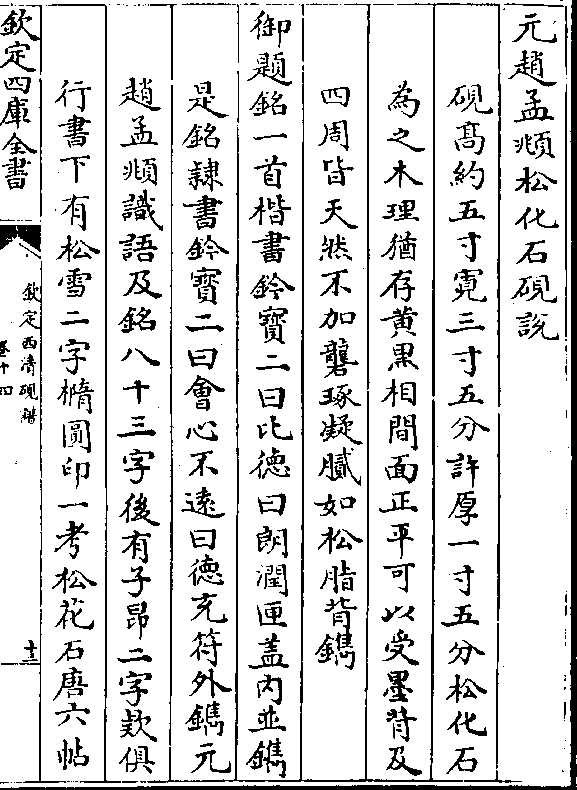 元趙孟頫松化石硯說
硯髙約五寸寛三寸五分許厚一寸五分松化石
為之木理猶存黄黒相間面正平可以受墨背及
四周皆天然不加礱琢凝膩如松脂背鐫
御題銘一首楷書鈐寳二曰比徳曰朗潤匣盖内並鐫
是銘隷書鈐寳二曰會心不逺曰徳充符外鐫元
趙孟頫識語及銘八十三字後有子昂二字欵俱
行書下有松雪二字橢圓印一考松花石唐六帖
欽定四庫全書
欽定西清硯譜
卷十四
十三